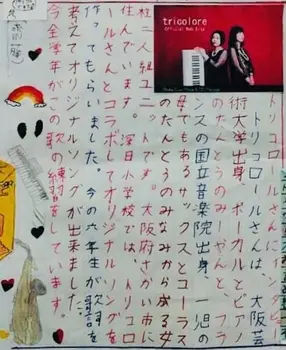 tricolore
Official Web Site
トリコロールさんにインタビー
トリコロールさんは、大阪芸
術大学出身、ボーカルとピアノ
のたんとうのみーやんとフラ
ンスの国立音楽院出身、一児の
母でもあるサックスとコーラス
のたんとうのみなみから成る女
性二人組ユニットです。大阪府さかい市に
住んでいます。深日小学校では、トリコロ
ールさんとコラボしてオリジナルソングを
作ってもらいました。今の六年生が歌詞を
考えてオリジナルソングが出来ました。
今全学年がこの歌の練習をしています。